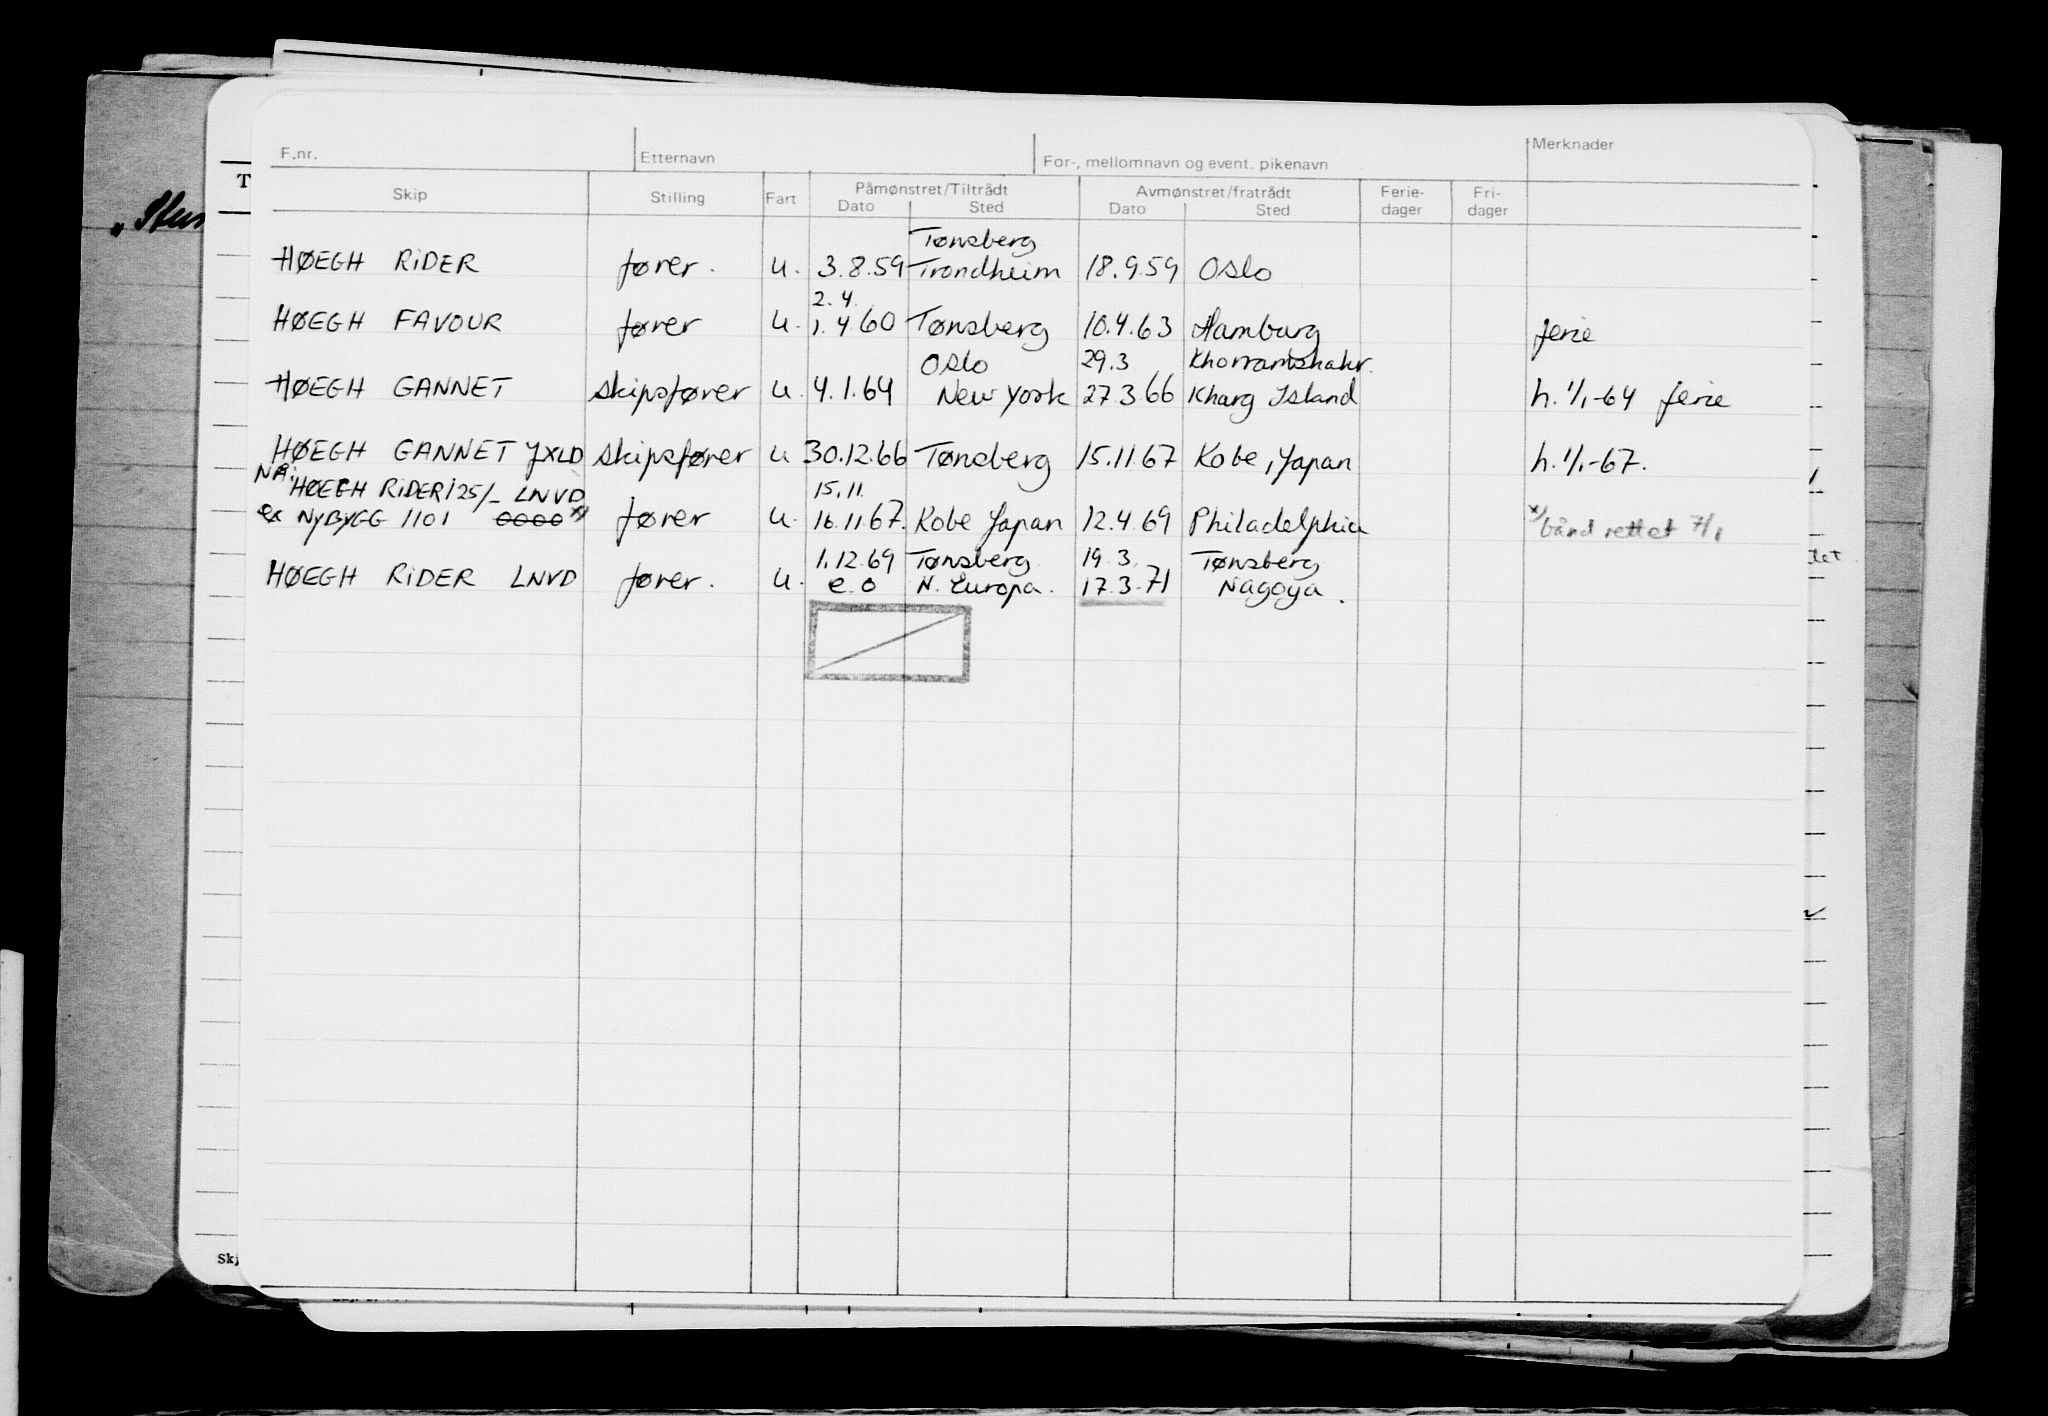 F.nr. Etternavn For-, mellomnavn og event. pikenavn Merknader
Skip Stilling Fart Påmønstret/Tiltrådt Avmønstret/fratrådt Ferie- Fri-
Dato Sted Dato Sted dager dager
Tønsberg
HØEGH RIDER fører. u. 3.8.59 Trondheim 18.9.59 Oslo
2.4.
HØEGH FAVOUR fører u. 1.4.60 Tønsberg 10.4.63 Hamburg ferie
Oslo 29.3 Khorramshahr.
HØEGH GANNET skipsfører u. 4.1.64 New York 27.3.66 Kharg Island h. 1/1-64 ferie
HØEGH GANNET JXLD skipsfører u 30.12.66 Tønsberg 15.11.67 Kobe, Japan h. 1/1-67.
NÅ: HØEGH RIDER 125/- LNVD 15.11.
ex NYBYGG 1101 0000 x) fører u. 16.11.67. Kobe Japan 12.4.69 Philadelphia x) bånd rettet 7/1
1.12.69 Tønsberg 19.3. Tønsberg
HØEGH RIDER LNVD fører. u. e.o N. Europa. 17.3.71 Nagoya.
T
Skj